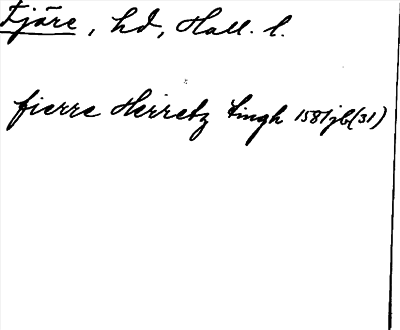 Fjäre, hd, Hall. l.
fierre Heiretz tingh 1581 jb(31)